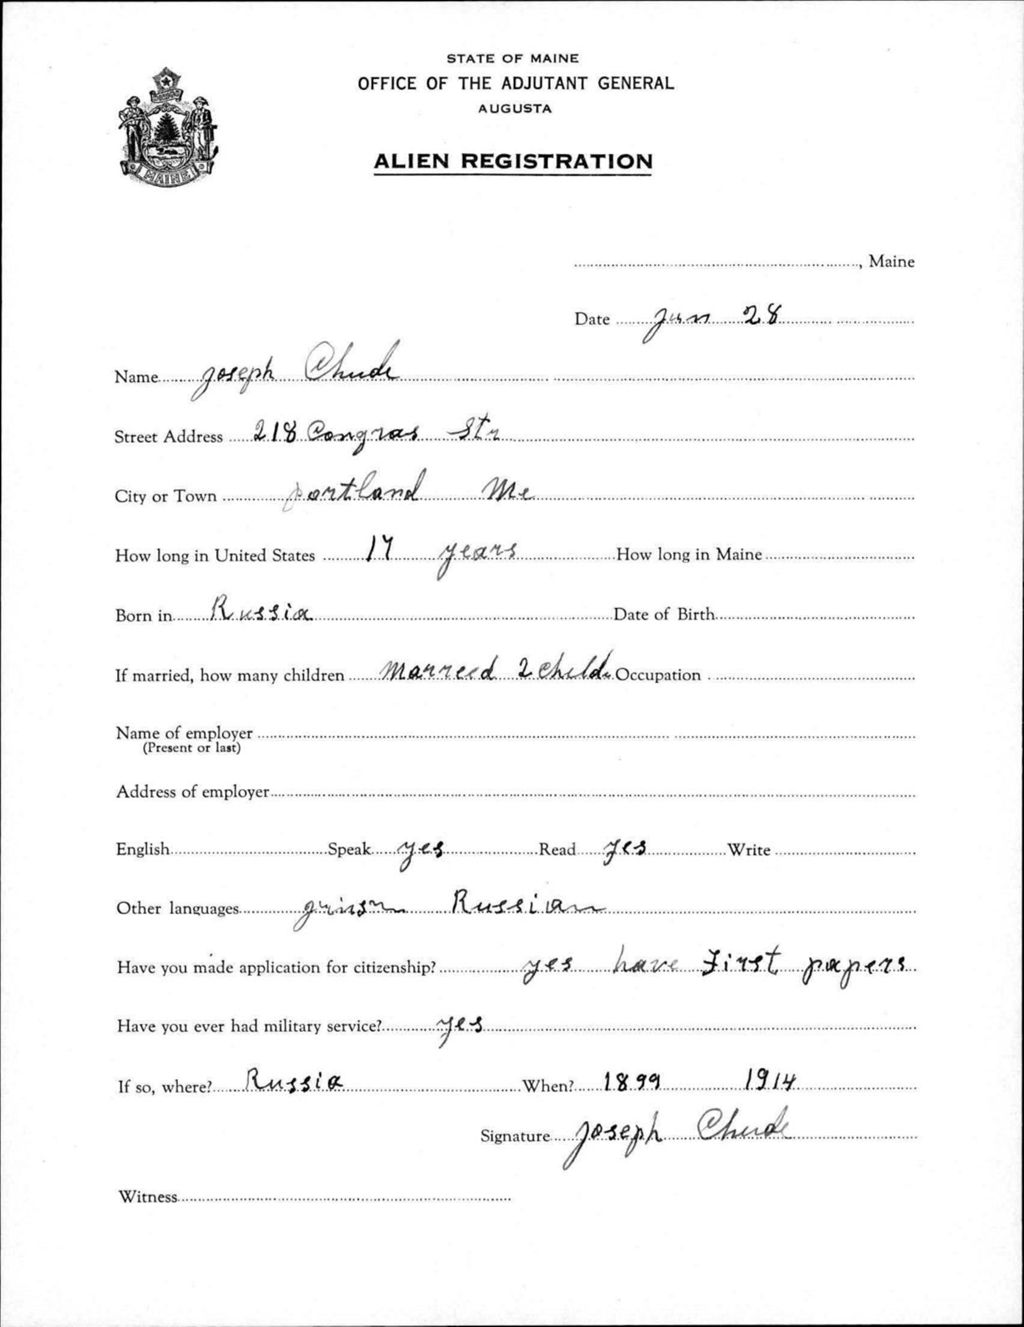 STATE OF MAINE
OFFICE OF THE ADJUTANT GENERAL
AUGUSTA
ALIEN REGISTRATION
MAINE
, Maine
Date Jun 28
Name Joseph
Street Address 218 Congras Str
City or Town portland Me
How long in United States 17 years How long in Maine
Born in Russia Date of Birth
If married, how many children Marreed 2 Child Occupation
Name of employer
(Present or last)
Address of employer
English Speak yes Read yes Write
Other languages Russian
Have you made application for citizenship? yes have First papers
Have you ever had military service? yes
If so, where? Russia When? 1899 1914
Signature Joseph
Witness